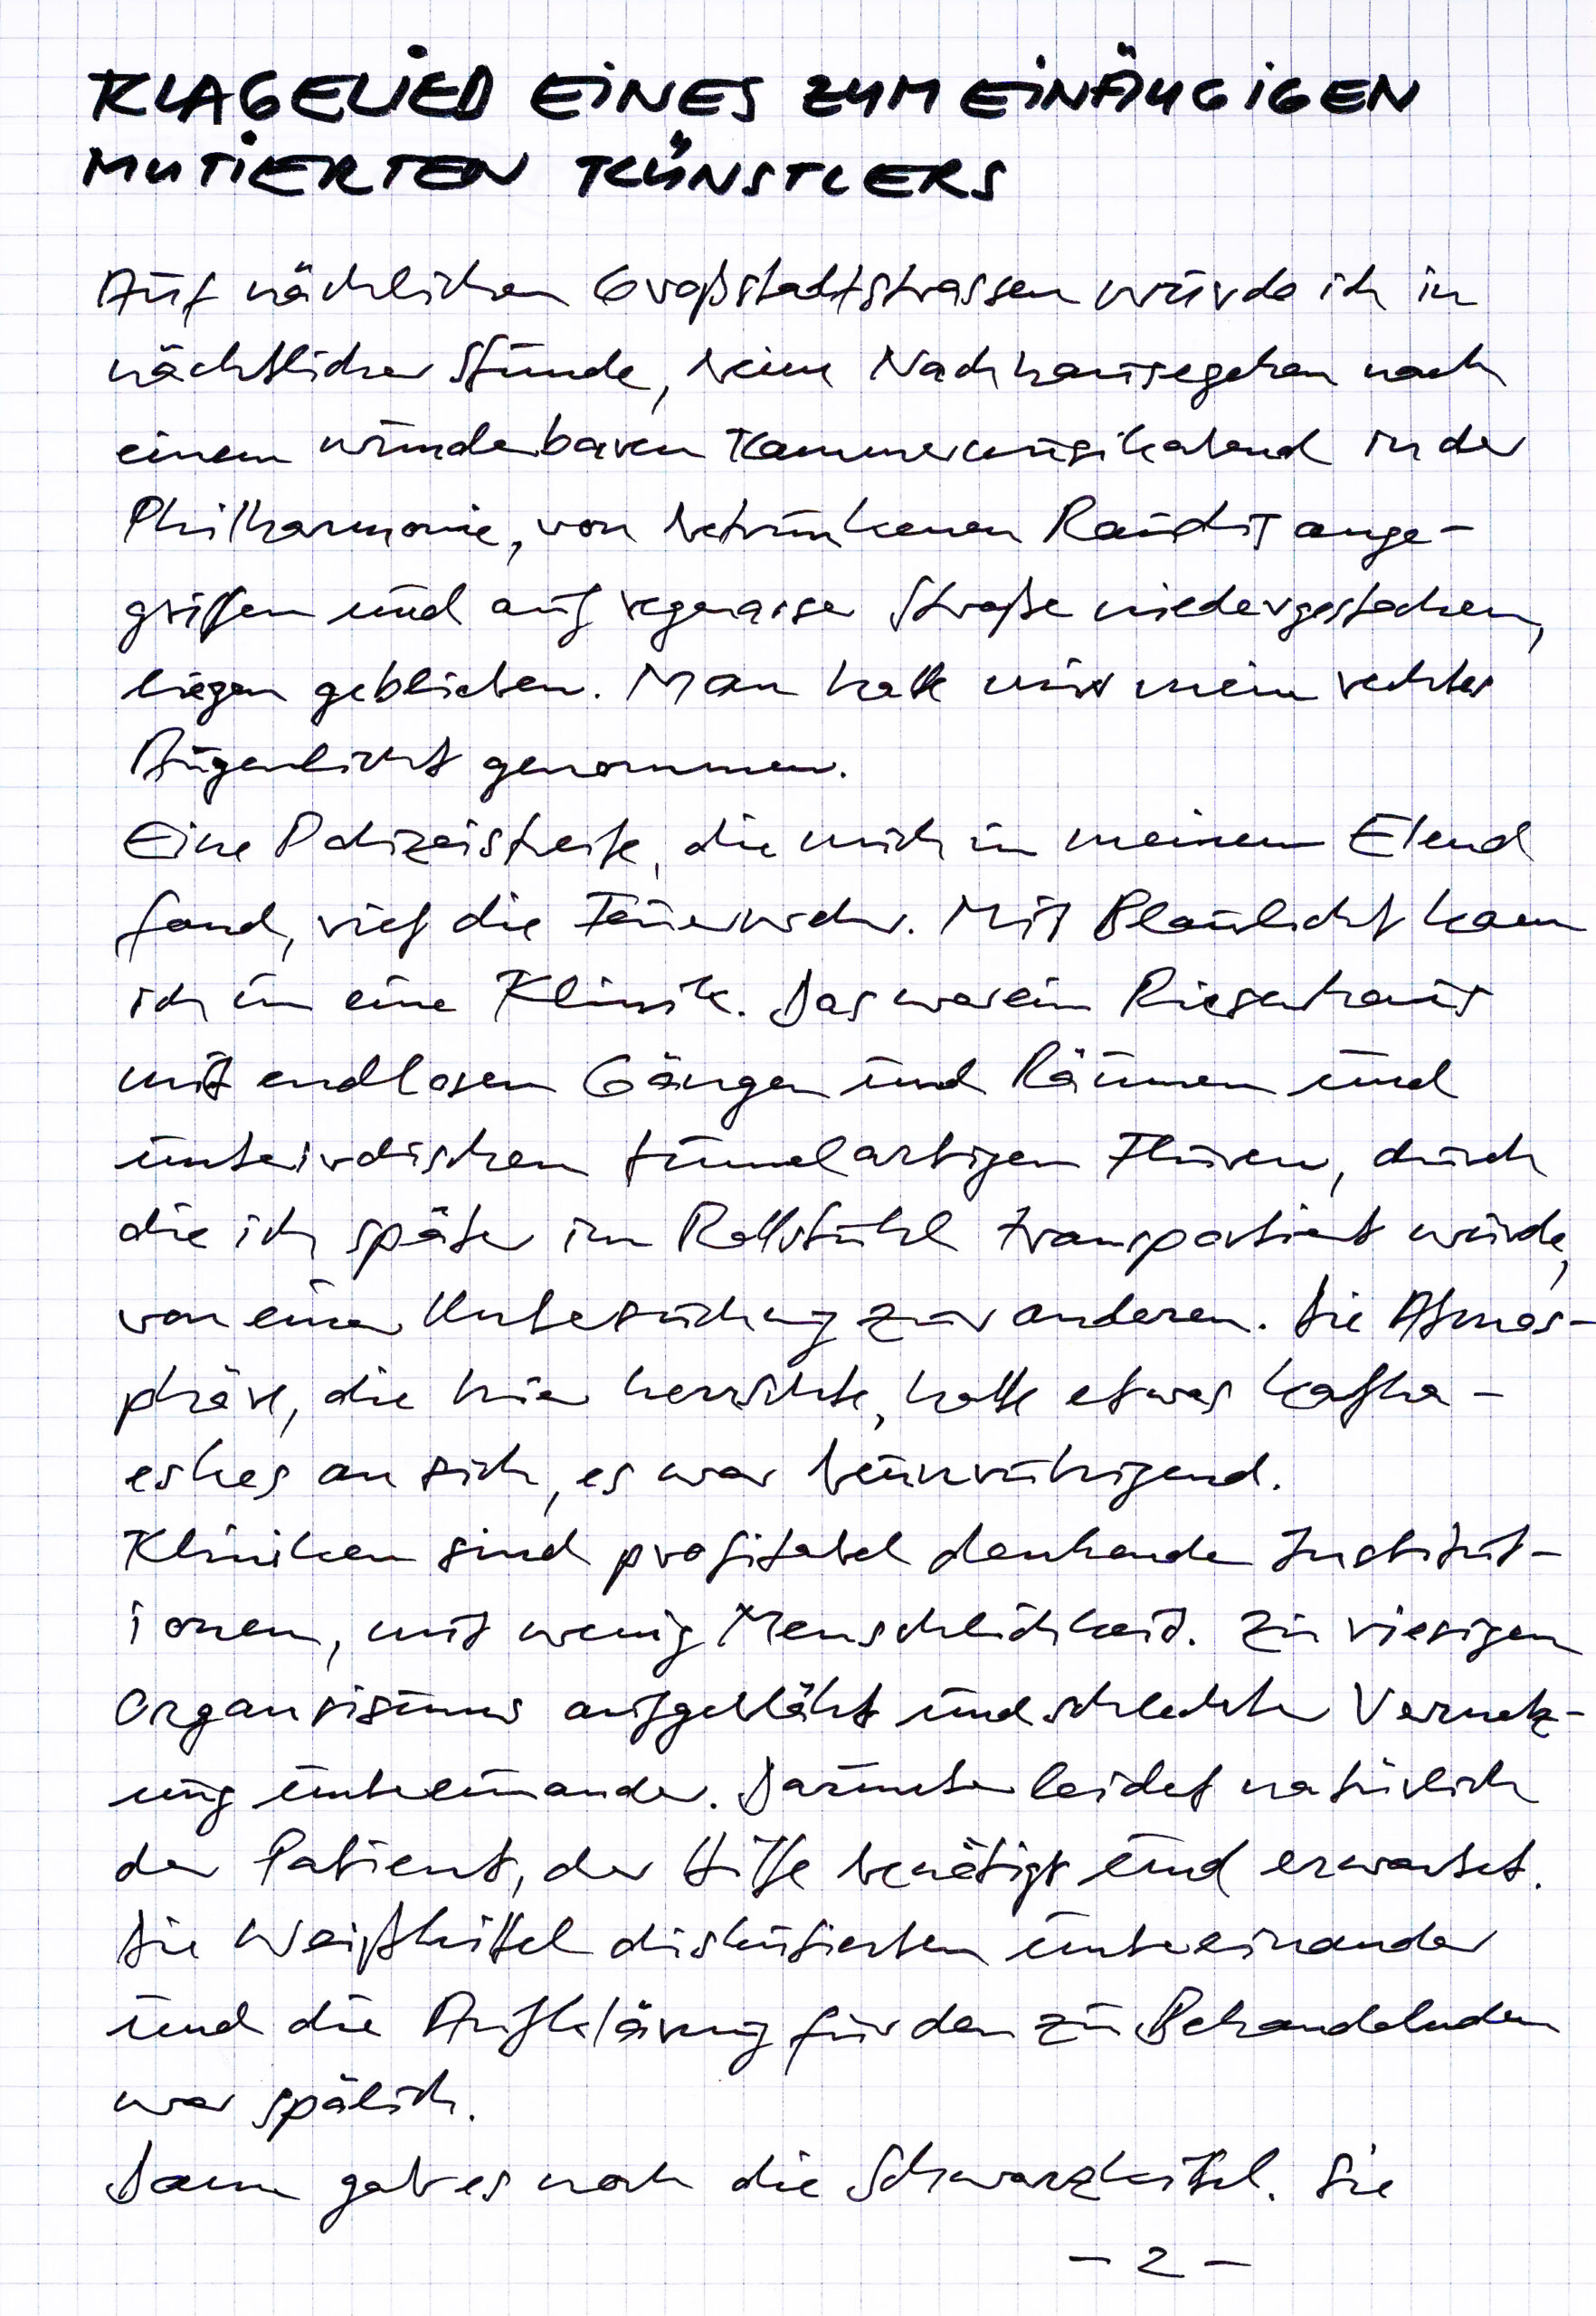 KLAGELIED EINES ZUM EINÄUGIGEN
MUTIERTEN KÜNSTLERS
Auf nächlichen Großstadtstrassen wurde ich in
nächtlicher Stunde, beim Nachhausegehen nach
einem wunderbaren Kammermusikabend in der
Philharmonie, von betrunkenen Raudis ange-
griffen und auf regennasser Straße niedergestochen,
liegen geblieben. Man hatte mir mein rechtes
Augenlicht genommen.
Eine Polizeistreife, die mich in meinem Elend
fand, rief die Feuerwehr. Mit Blaulicht kam
ich in eine Klinik. Das war ein Riesenhaus
mit endlosen Gängen und Räumen und
unterirdischen tunnelartigen Fluren, durch
die ich später im Rollstuhl transportiert wurde,
von einer Untersuchung zur anderen. Die Atmos-
phäre, die hier herrschte, hatte etwas kafka-
eskes an sich, es war beunruhigend.
Kliniken sind profitabel denkende Institut-
ionen, mit wenig Menschlichkeit. Zu riesigen
Organismus aufgebläht und schlechter Vernetz-
ung untereinander. Darunter leidet natürlich
der Patient, der Hilfe benötigt und erwartet.
Die Weißkittel diskutierten untereinander
und die Aufklärung für den zu Behandelnden
war spälich.
Dann gab es noch die Schwarzkittel. Die
- 2 -